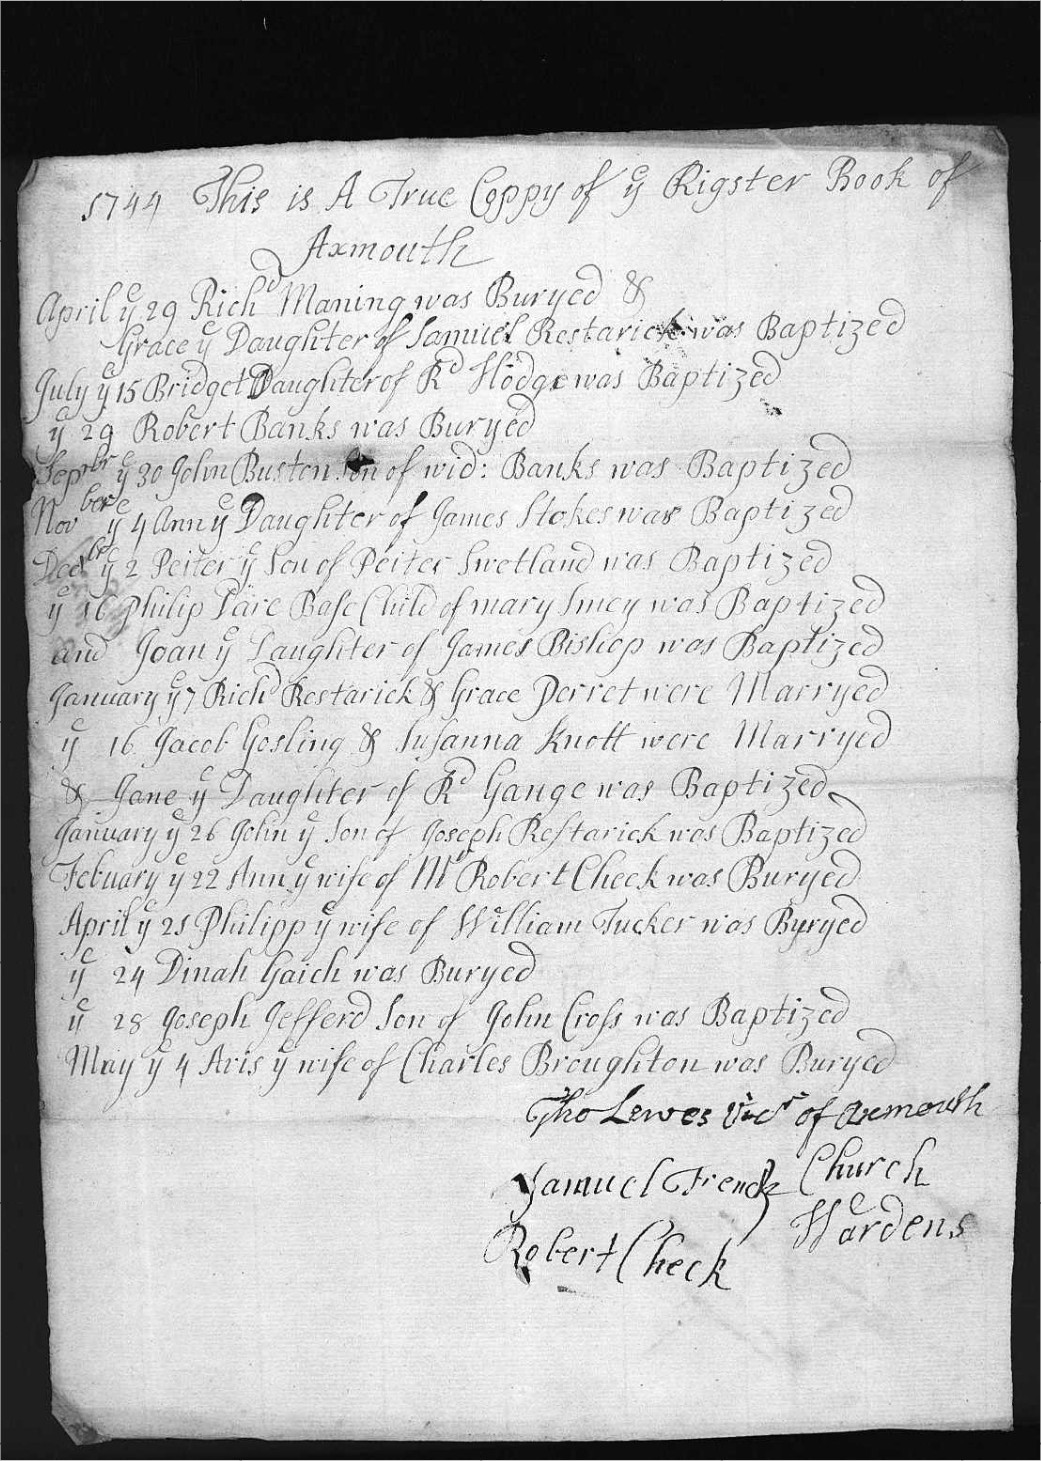 1744 This is A True Coppy of ye Rigster Book of
Axmouth
April ye 29 Richd Maning was Buryed &
Grace ye Daughter of Samuel Restarick was Baptized
July ye 15 Bridget Daughter of Rd Hodge was Baptized
ye 29 Robert Banks was Buryed
Sepbr ye 30 John Buston Son of wid: Banks was Baptized
Novber ye 4 Ann ye Daughter of James Stokes was Baptized
Decbr ye 2 Peiter ye Son of Peiter Swetland was Baptized
ye 16 Philip Pare Base Child of mary Smey was Baptized
and Joan ye Daughter of James Bishop was Baptized
January ye 7 Richd Restarick & Grace Perret were Marryed
ye 16 Jacob Gosling & Susanna Knott were Marryed
& Jane ye Daughter of Rd Gange was Baptized
January ye 26 John ye Son of Joseph Restarick was Baptized
Febuary ye 22 Ann ye wife of Mr Robert Check was Buryed
April ye 21 Philipp ye wife of William Tucker was Byryed
ye 24 Dinah Gaich was Buryed
ye 28 Joseph Jefferd Son of John Cross was Baptized
May ye 4 Avis ye wife of Charles Broughton was Buryed
Tho Lewes Vicr of Axmouth
Samuel French Church
Robert Check Wardens